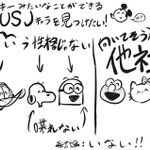 キーみたいなことができる
USJキャラを見つけたい!
いう性格じゃない
向いてそう
他社
(喋れない)
いない!!